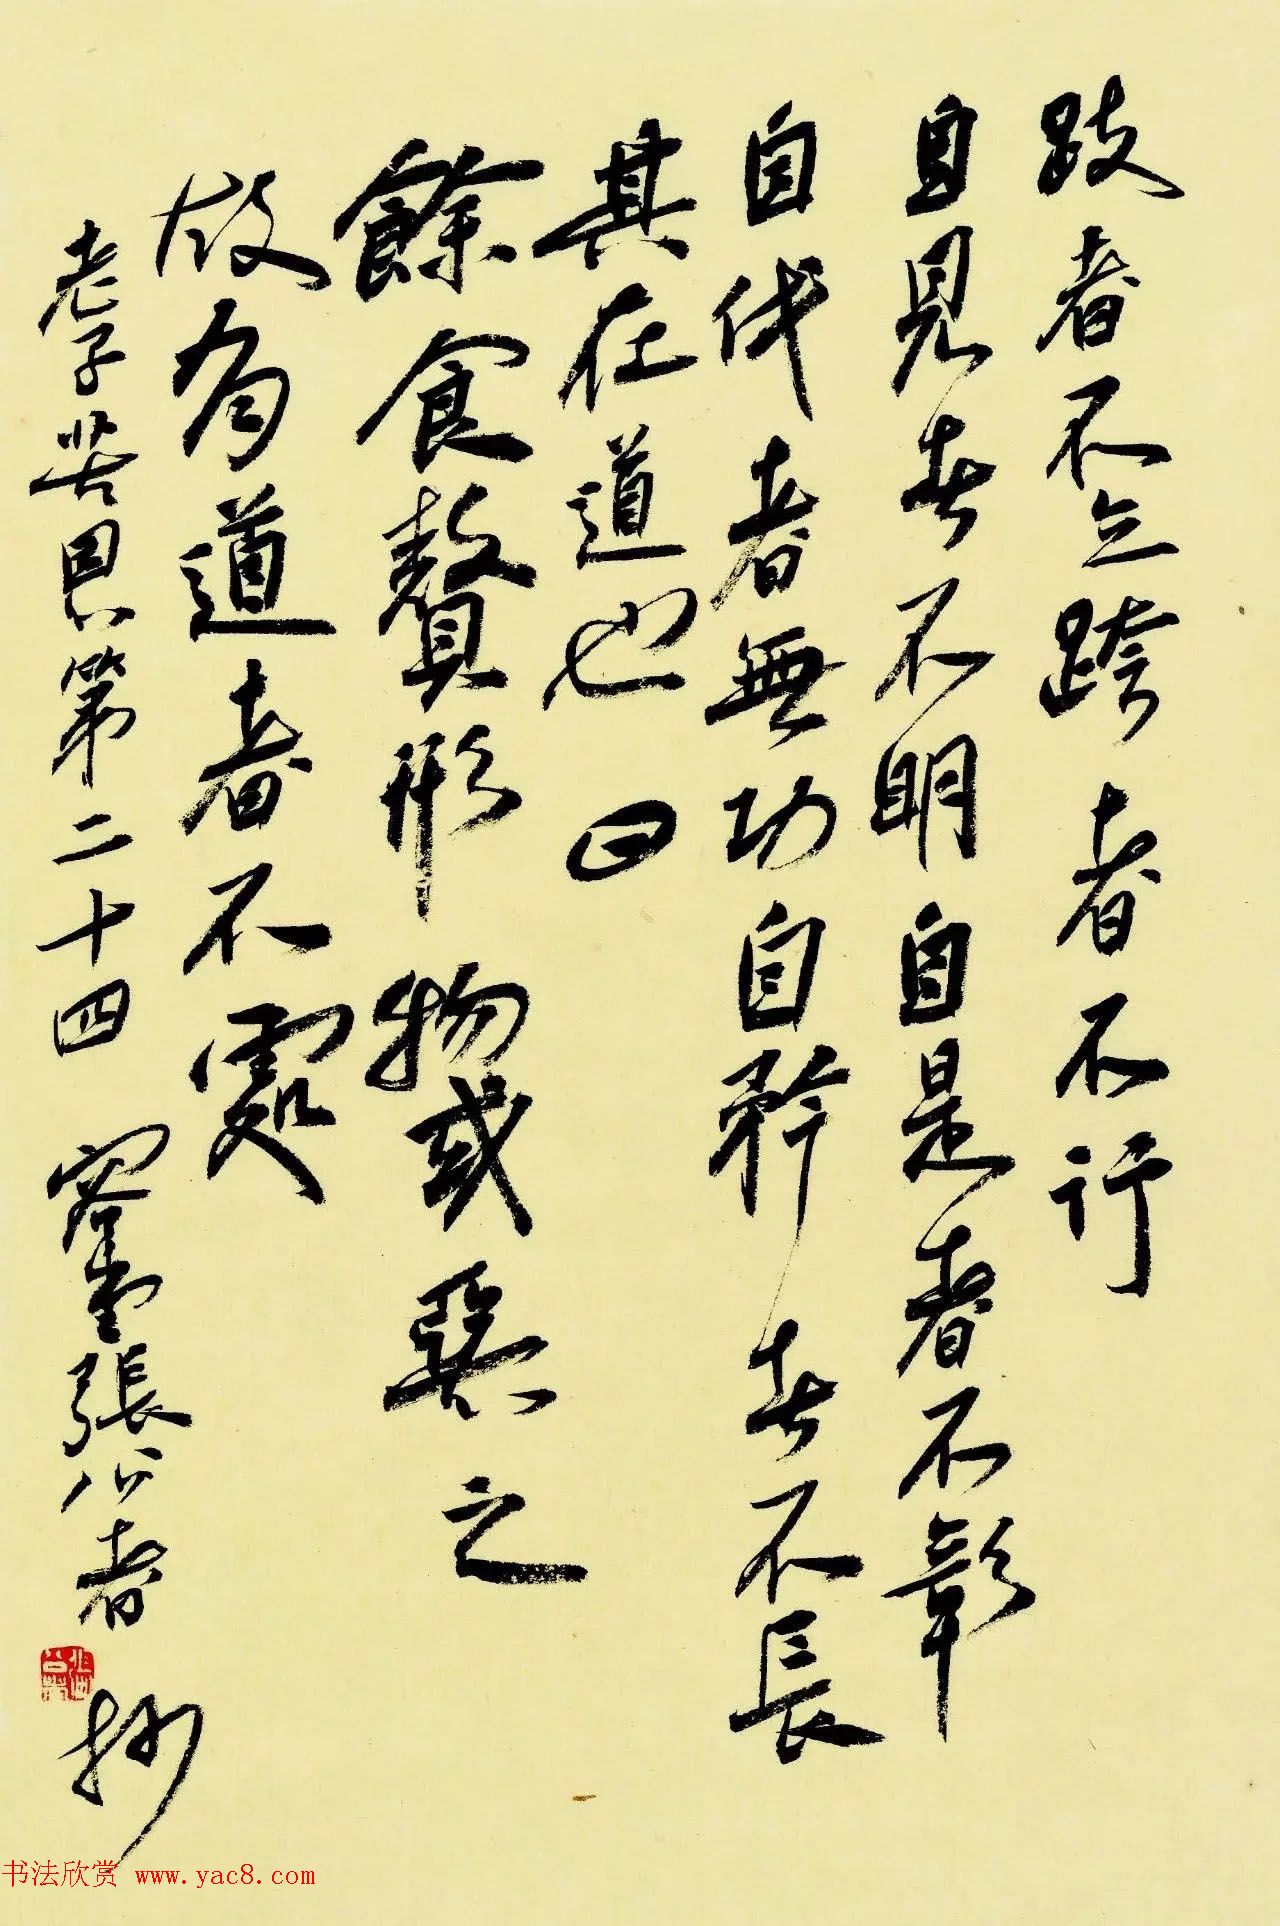 跂者不立跨者不行
自見者不明自是者不彰
自伐者無功自矜者不長
其在道也曰
餘食贅形物或惡之
故有道者不處
老子苦恩第二十四 堂張公者抄
书法欣赏 www.yac8.com